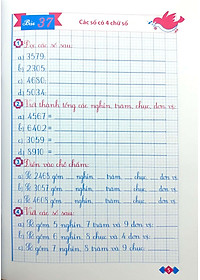 Bài 37
Các số có 4 chữ số
1 Đọc các số sau:
a) 3579:
b) 2305:
c) 4680:
d) 5034:
2 Viết thành tổng các nghìn, trăm, chục, đơn vị:
a) 4567 =
b) 6402 =
c) 3059 =
d) 8910 =
3 Điền vào chỗ chấm:
a) Số 2468 gồm ... nghìn ... trăm ... chục ... đơn vị
b) Số 3057 gồm ... nghìn ... trăm ... chục ... đơn vị
c) Số 4608 gồm ... nghìn ... trăm ... chục ... đơn vị
4 Viết các số sau:
a) Số gồm 5 nghìn, 7 trăm và 9 đơn vị:
b) Số gồm 6 nghìn, 8 chục và 4 đơn vị:
c) Số gồm 7 nghìn, 8 trăm và 9 chục:
5